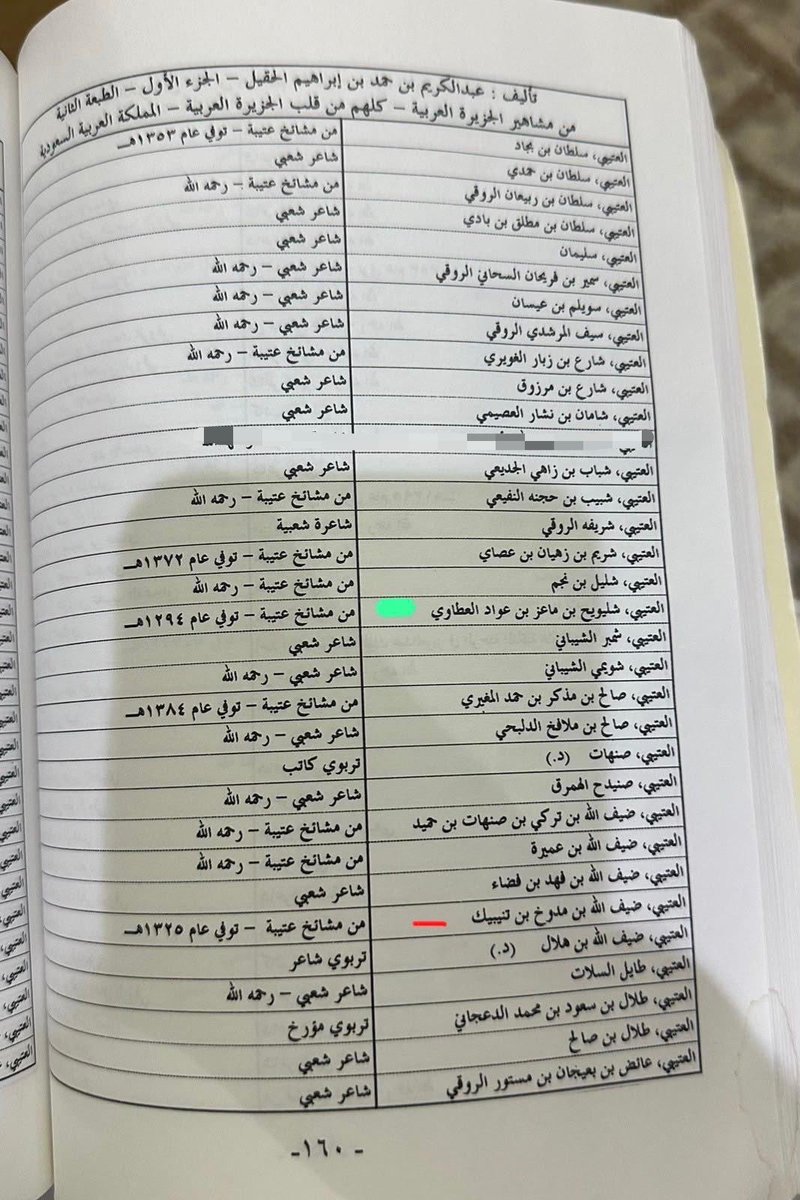 تأليف : عبدالكريم بن حمد بن إبراهيم الحقيل – الجزء الأول – الطبعة الثانية
من مشاهير الجزيرة العربية – كلهم من قلب الجزيرة العربية – المملكة العربية السعودية
العتيبي، سلطان بن بجاد من مشائخ عتيبة – توفي عام ١٣٥٣هـ
العتيبي، سلطان بن حمدي شاعر شعبي
العتيبي، سلطان بن ربيعان الروقي من مشائخ عتيبة – رحمه الله
العتيبي، سلطان بن مطلق بن بادي شاعر شعبي
العتيبي، سليمان شاعر شعبي
العتيبي، سمير بن فريحان السحاني الروقي شاعر شعبي – رحمه الله
العتيبي، سويلم بن عيسان شاعر شعبي – رحمه الله
العتيبي، سيف المرشدي الروقي شاعر شعبي – رحمه الله
العتيبي، شارع بن زبار الغويري من مشائخ عتيبة – رحمه الله
العتيبي، شارع بن مرزوق شاعر شعبي
العتيبي، شامان بن نشار العصيمي شاعر شعبي
العتيبي، شباب بن زاهي الجديعي شاعر شعبي
العتيبي، شبيب بن حجنه النفيعي من مشائخ عتيبة – رحمه الله
العتيبي، شريفه الروقي شاعرة شعبية
العتيبي، شريم بن زهيان بن عصاي من مشائخ عتيبة – توفي عام ١٣٧٢هـ
العتيبي، شليل بن نجم من مشائخ عتيبة – رحمه الله
العتيبي، شليويح بن ماعز بن عواد العطاوي من مشائخ عتيبة – توفي عام ١٢٩٤هـ
العتيبي، شمبر الشيباني شاعر شعبي
العتيبي، شويمي الشيباني شاعر شعبي – رحمه الله
العتيبي، صالح بن مذكر بن حمد المغيري من مشائخ عتيبة – توفي عام ١٣٨٤هـ
العتيبي، صالح بن ملافخ الدلبحي شاعر شعبي – رحمه الله
العتيبي، صنهات (د.) تربوي كاتب
العتيبي، صنيدح الهمرق شاعر شعبي – رحمه الله
العتيبي، ضيف الله بن تركي بن صنهات بن حميد من مشائخ عتيبة – رحمه الله
العتيبي، ضيف الله بن عميرة من مشائخ عتيبة – رحمه الله
العتيبي، ضيف الله بن فهد بن فضاء شاعر شعبي
العتيبي، ضيف الله بن مدوخ بن تنيبيك من مشائخ عتيبة – توفي عام ١٣٢٥هـ
العتيبي، ضيف الله بن هلال (د.) تربوي شاعر
العتيبي، طايل السلات شاعر شعبي – رحمه الله
العتيبي، طلال بن سعود بن محمد الدعجاني تربوي مؤرخ
العتيبي، طلال بن صالح شاعر شعبي
العتيبي، عائض بن بعيجان بن مستور الروقي شاعر شعبي
-١٦٠-